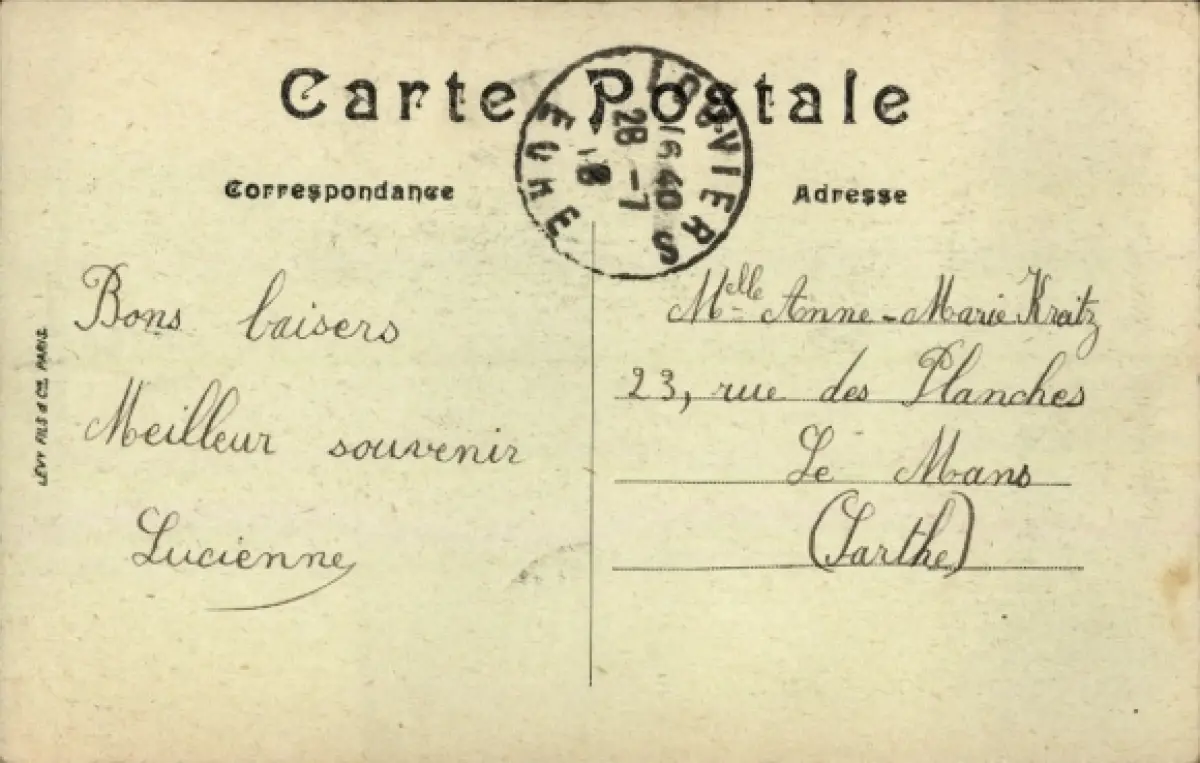 Carte Postale
Correspondance
Adresse
LOUVIERS
16 40
28 -7
18
EURE
Bons baisers
Meilleur souvenir
Lucienne
Melle Anne-Marie Kreitz
23, rue des Planches
Le Mans
(Sarthe)
LÉVY FILS & Cie, PARIS